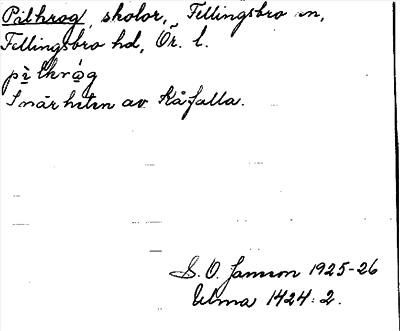 Pilkrog, skolor, Fellingsbro sn,
Fellingsbro hd, Ör. l.
pilkrog
I närheten av Kåfalla.
S. O. Jansson 1925-26
Ulma 1424:2.